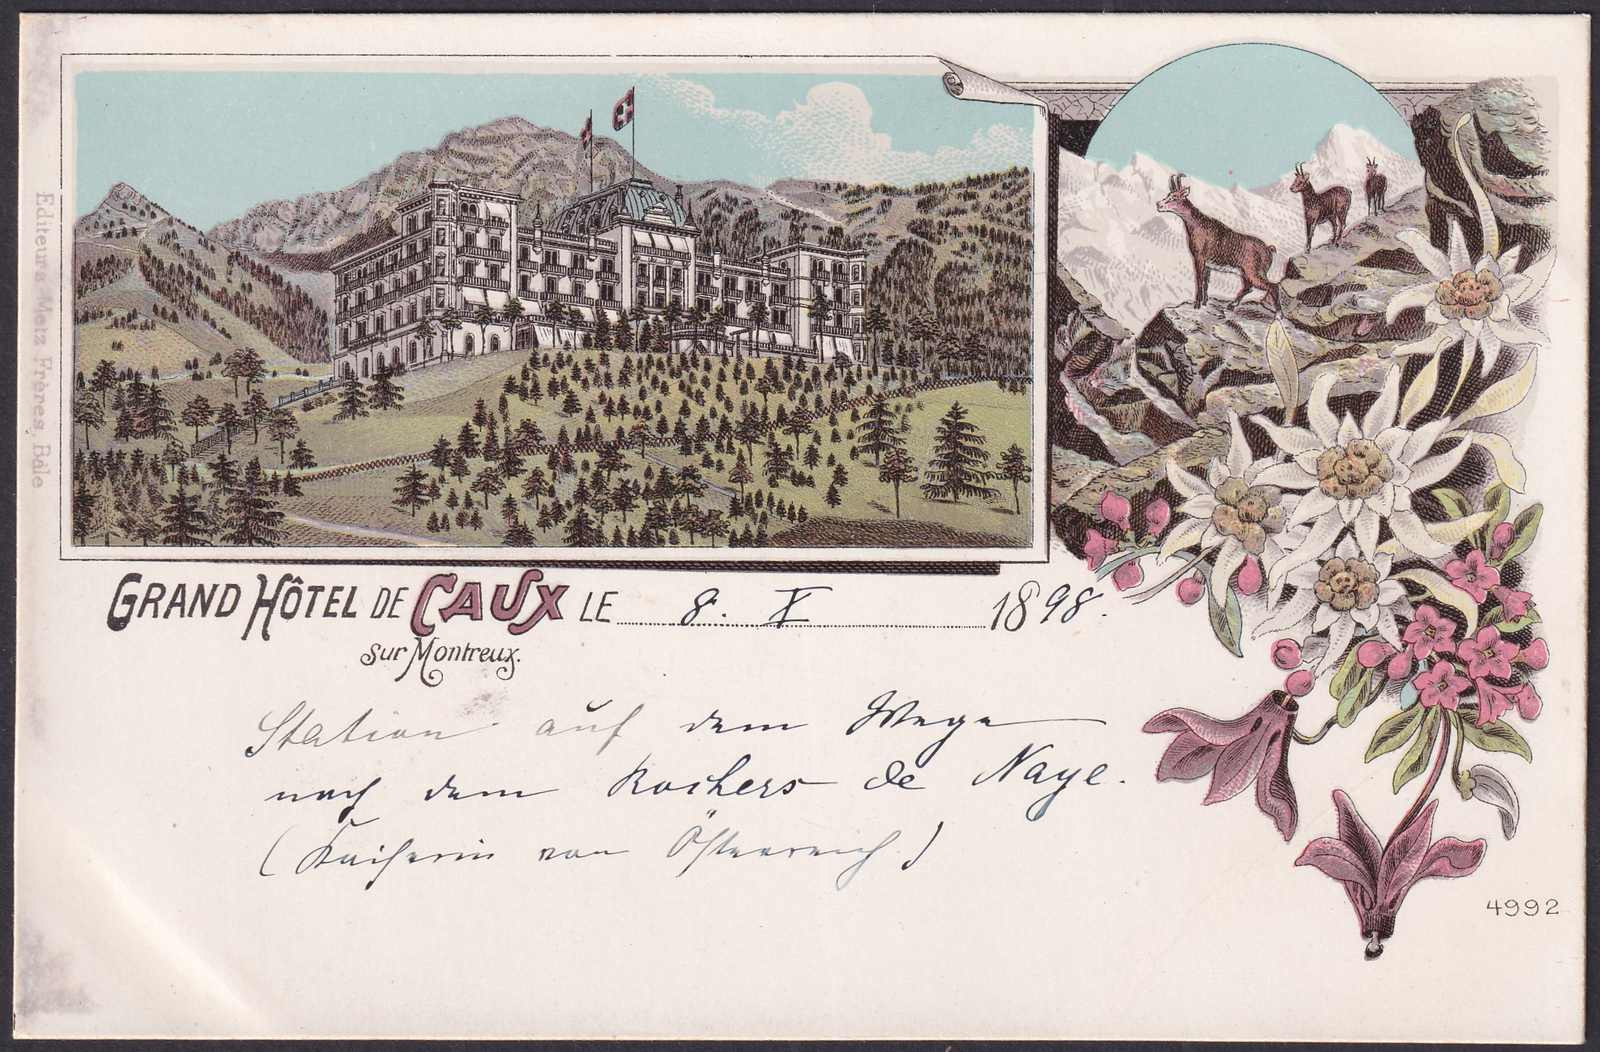 Editeurs Metz Frères, Bâle
GRAND HÔTEL DE CAUX LE 8. X 1898.
sur Montreux.
Station auf dem Wege
nach dem Rochers de Naye.
(Kaiserin von Österreich.)
4992